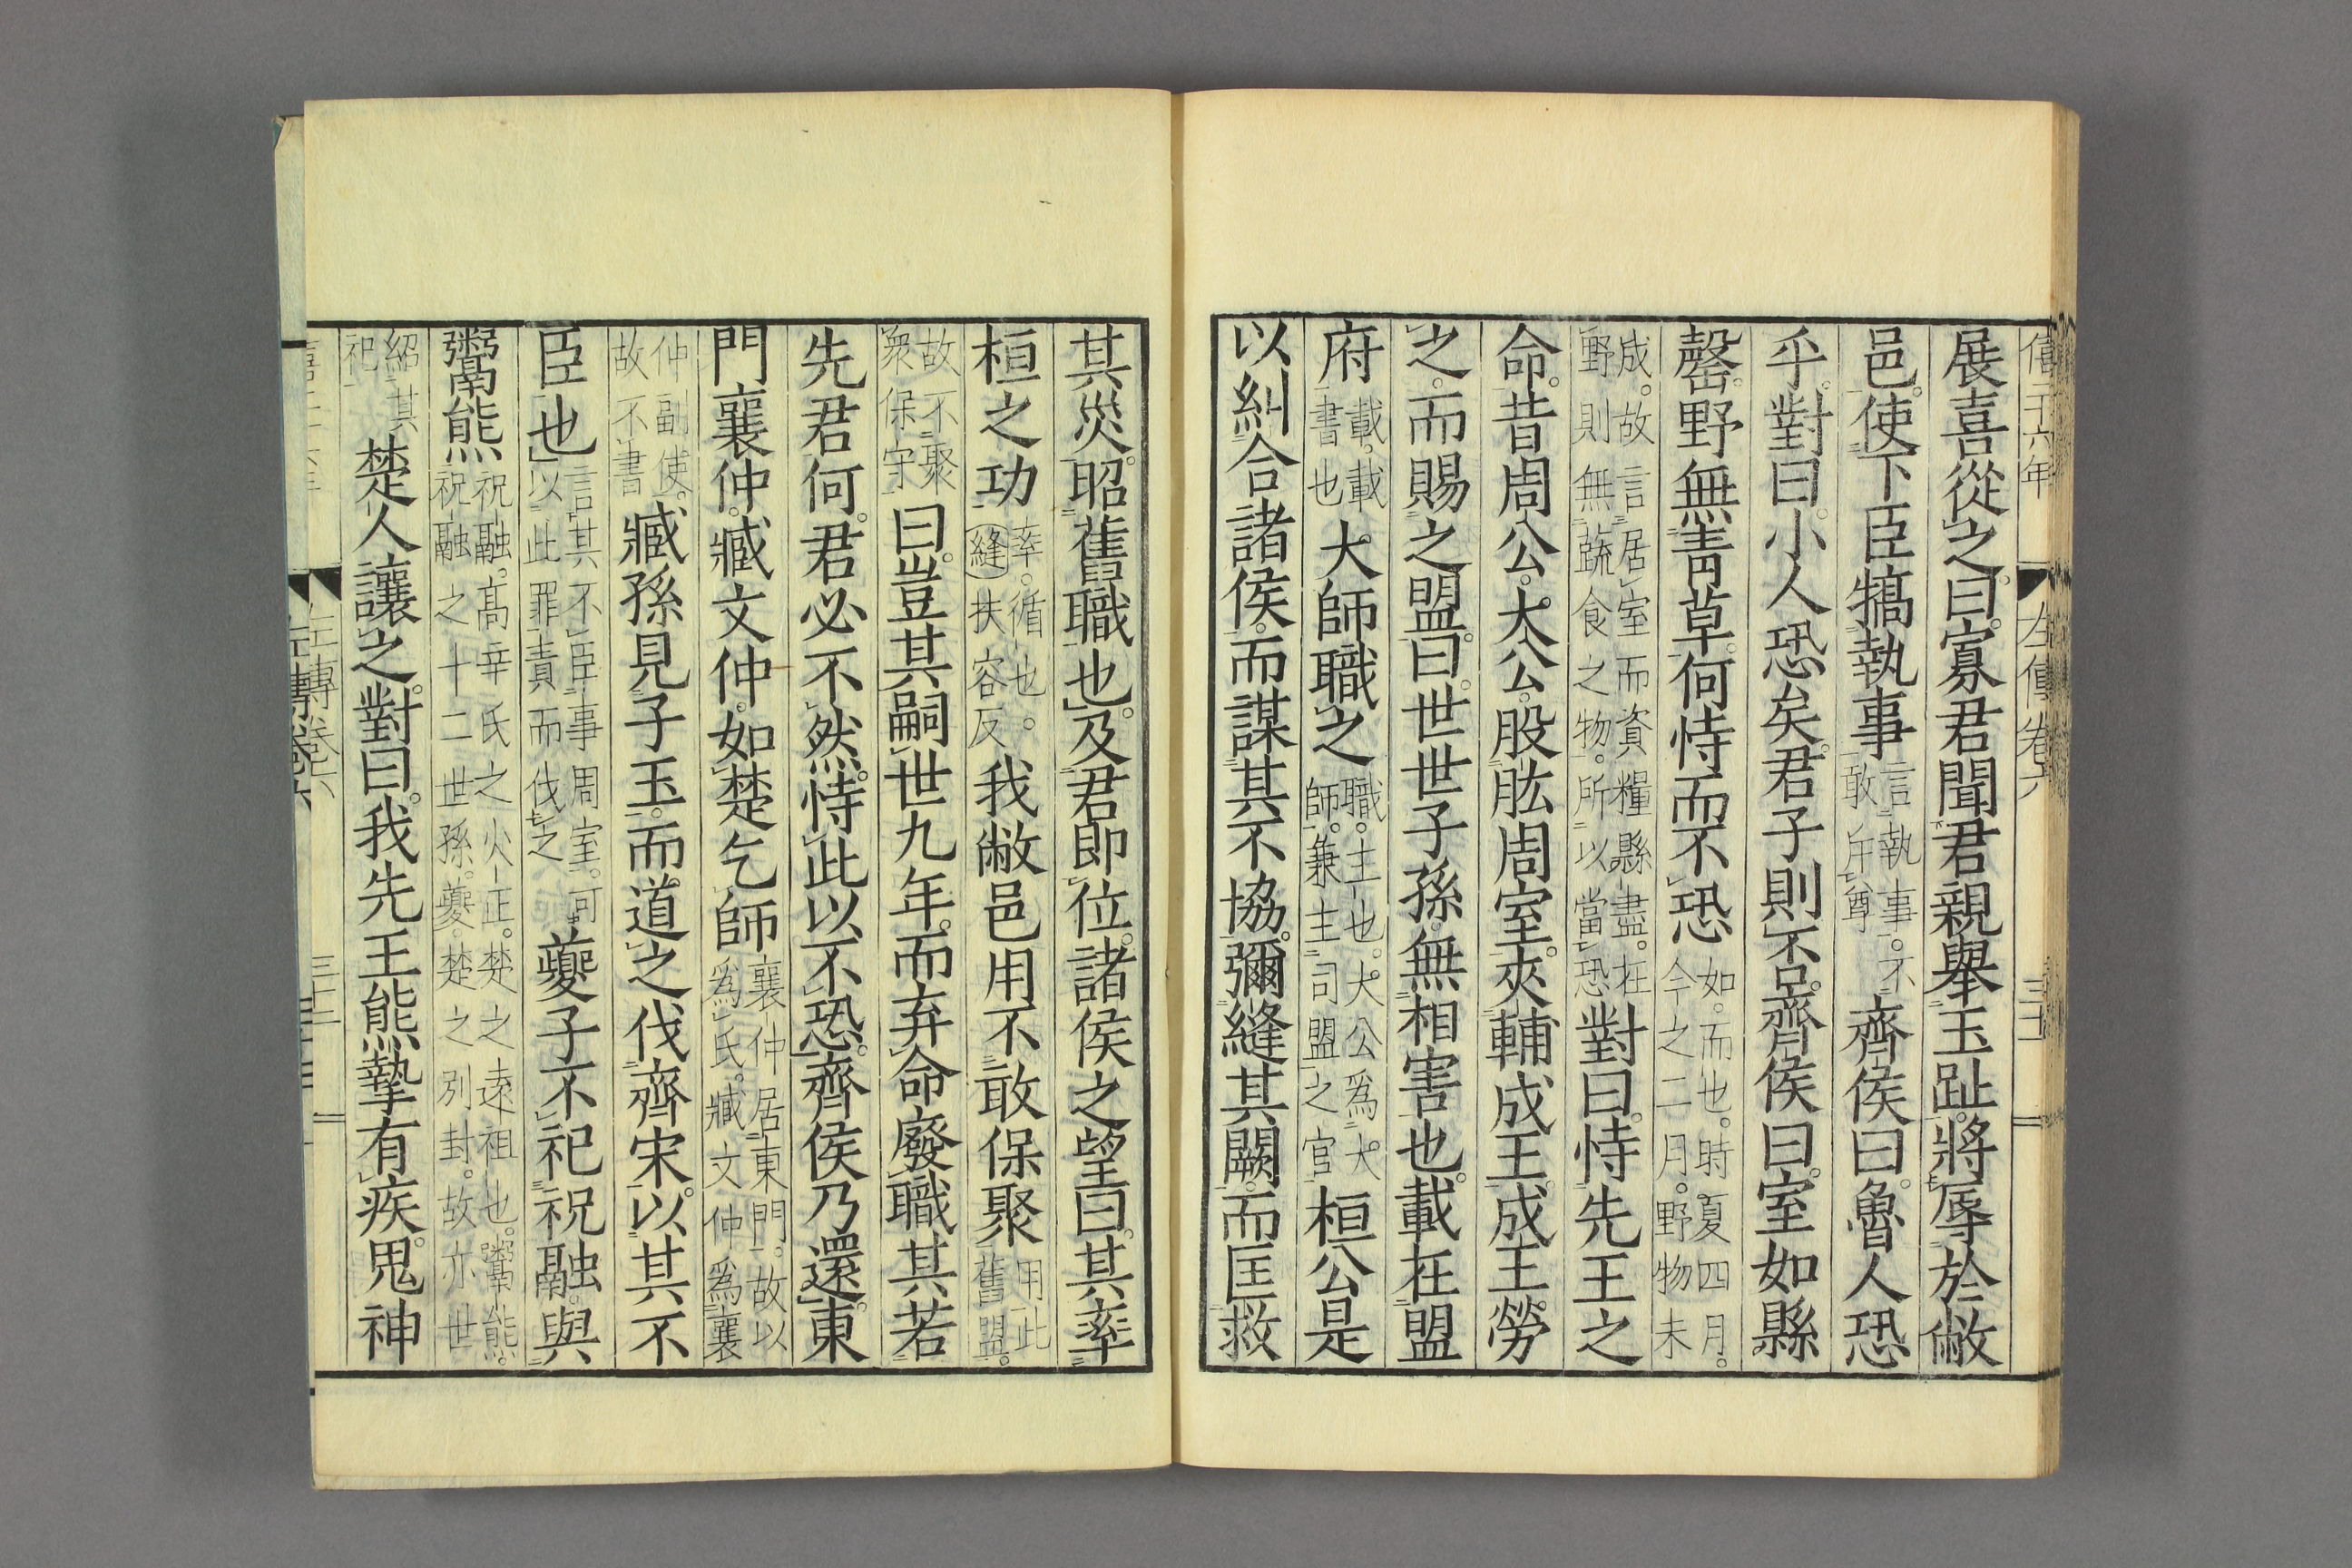 僖二十六年 左傳卷六
展喜從之曰。寡君聞君親舉玉趾。將辱於敝
邑。使下臣犒執事言執事。不敢斥尊齊侯曰。魯人恐
乎。對曰。小人恐矣。君子則不。齊侯曰。室如縣
罄。野無靑草。何恃而不恐如。而也。時夏四月。今之二月。野物未
成。故言居室而資糧縣盡。在野則無蔬食之物。所以當恐對曰。恃先王之
命。昔周公。大公。股肱周室。夾輔成王。成王。勞
之。而賜之盟。曰。世世子孫。無相害也。載在盟
府載。載書也大師職之職。主也。大公爲大師。兼主司盟之官桓公是
以糾合諸侯。而謀其不協。彌縫其闕。而匡救
其災。昭舊職也。及君即位。諸侯之望曰。其率
桓之功率。循也。縫扶容反我敝邑用不敢保聚用此舊盟。
故不聚衆保守曰。豈其嗣世九年。而弃命廢職其若
先君何。君必不然。恃此以不恐。齊侯乃還。東
門襄仲。臧文仲。如楚乞師襄仲居東門。故以爲氏。臧文仲爲襄
仲副使。故不書臧孫見子玉。而道之伐齊宋。以其不
臣也言其不臣事周室。可以此罪責而伐之夔子不祀祝融。與
鬻熊祝融。高辛氏之火正。楚之遠祖也。鬻熊。祝融之十二世孫。夔。楚之別封。故亦世
紹其祀楚人讓之。對曰。我先王熊摯有疾。鬼神
左傳卷六